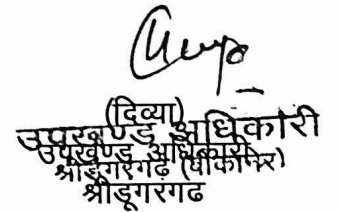 (दिव्या)
उपखण्ड अधिकारी
उपखण्ड अधिकारी
श्रीडूंगरगढ़ (बीकानेर)
श्रीडूंगरगढ